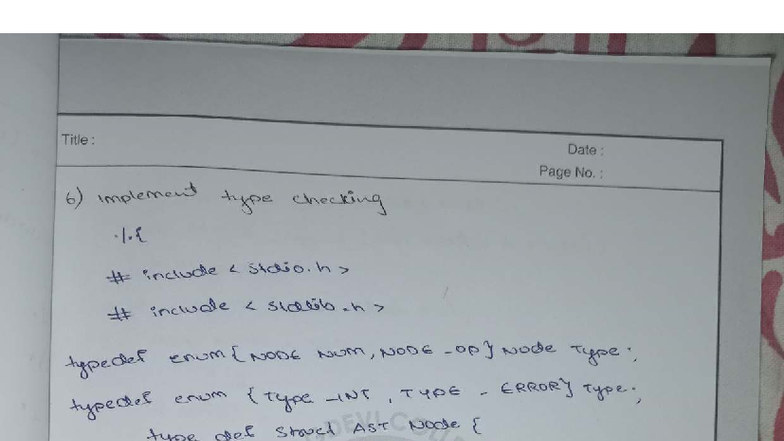 Title :
Date :
Page No. :
6) Implement type checking
%{
# include < stdio.h >
# include < stdlib.h >
typedef enum { NODE NUM, NODE _OP } Node Type ;
typedef enum { Type _INT , TYPE _ ERROR } Type ;
type def Struct AST Node {